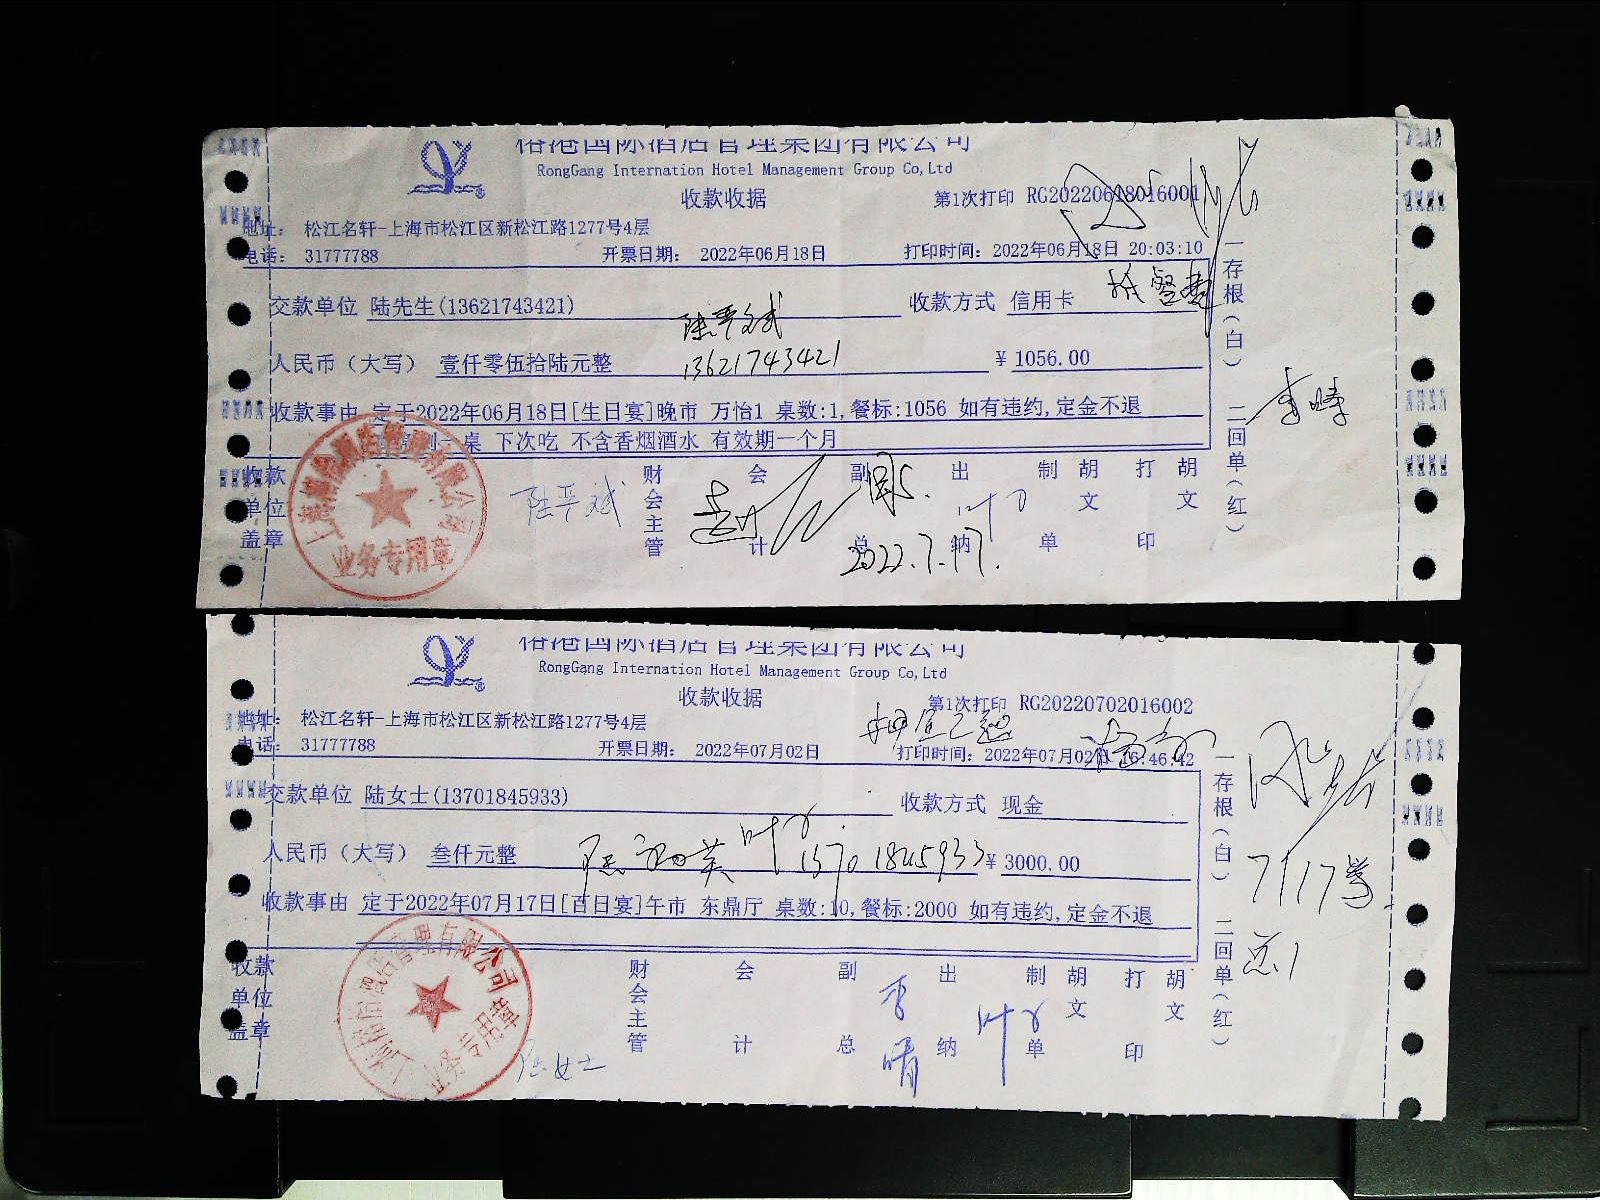 榕港国际酒店管理集团有限公司
RongGang Internation Hotel Management Group Co,Ltd
收款收据
第1次打印 RG20220618016001
地址： 松江名轩-上海市松江区新松江路1277号4层
电话： 31777788 开票日期： 2022年06月18日 打印时间：2022年06月18日 20:03:10
交款单位 陆先生(13621743421) 收款方式 信用卡
13621743421
人民币（大写） 壹仟零伍拾陆元整 ￥1056.00
收款事由 定于2022年06月18日[生日宴]晚市 万怡1 桌数:1,餐标:1056 如有违约,定金不退
桌 下次吃 不含香烟酒水 有效期一个月
一存根(白) 二回单(红)
收款单位盖章 财会主管 会计 副总 出纳 制单 胡文 打印 胡文
业务专用章
2022.7.17.
榕港国际酒店管理集团有限公司
RongGang Internation Hotel Management Group Co,Ltd
收款收据
第1次打印 RG20220702016002
地址： 松江名轩-上海市松江区新松江路1277号4层
电话： 31777788 开票日期： 2022年07月02日 打印时间：2022年07月02日 16:46:42
交款单位 陆女士(13701845933) 收款方式 现金
人民币（大写） 叁仟元整 13701845933 ￥3000.00
收款事由 定于2022年07月17日[百日宴]午市 东鼎厅 桌数:10,餐标:2000 如有违约,定金不退
一存根(白) 二回单(红)
收款单位盖章 财会主管 会计 副总 出纳 制单 胡文 打印 胡文
业务专用章
陆女士
李晴